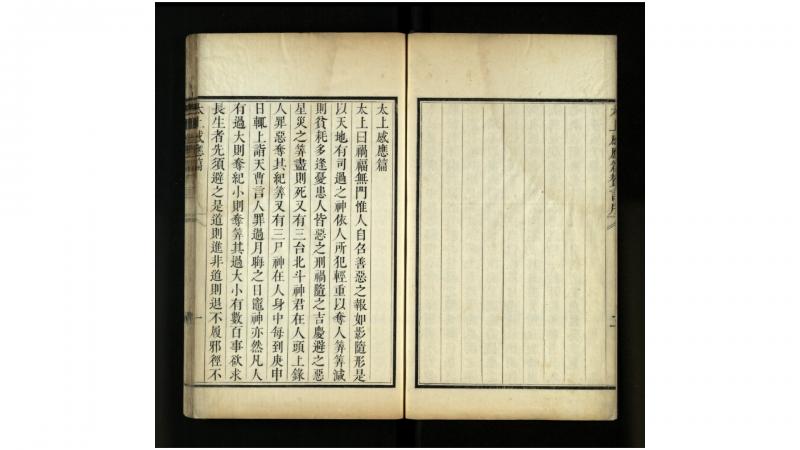 太上感應篇贅言序
二
太上感應篇
太上曰禍福無門惟人自召善惡之報如影隨形是
以天地有司過之神依人所犯輕重以奪人筭筭減
則貧耗多逢憂患人皆惡之刑禍隨之吉慶避之惡
星災之筭盡則死又有三台北斗神君在人頭上錄
人罪惡奪其紀筭又有三尸神在人身中每到庚申
日輒上詣天曹言人罪過月晦之日竈神亦然凡人
有過大則奪紀小則奪筭其過大小有數百事欲求
長生者先須避之是道則進非道則退不履邪徑不
太上感應篇
一